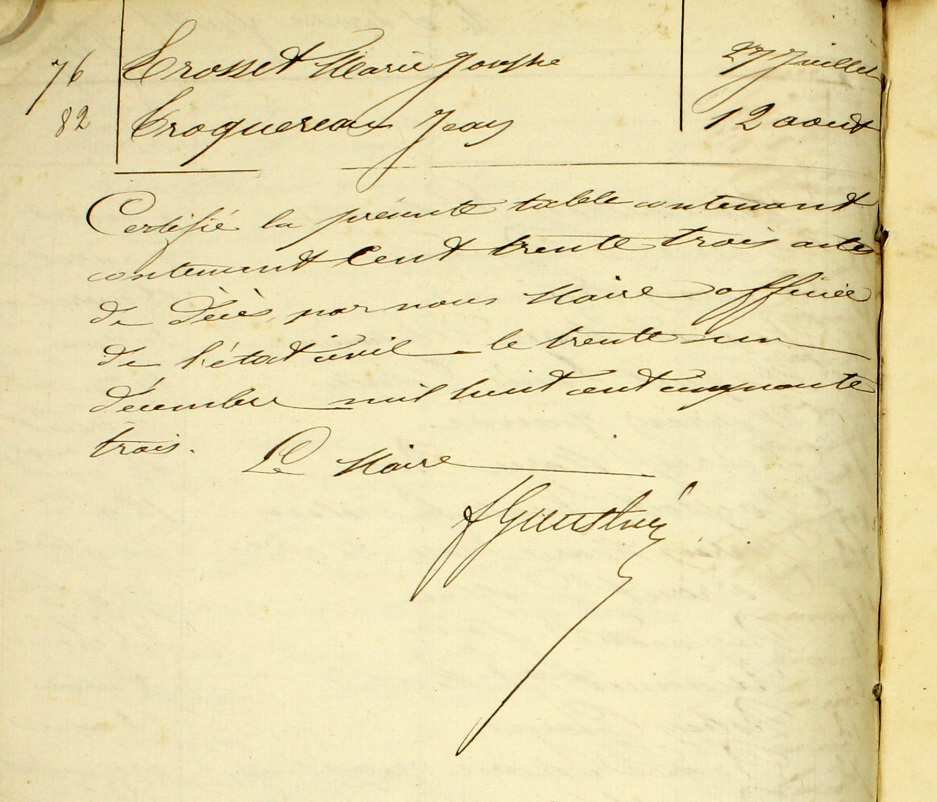 76 Trosset Marie Josephe 27 Juillet
82 Croquereau Jean 12 aout
Certifié la présente table contenant
contenant Cent trente trois actes
de décès par nous Maire officier
de l'état civil le trente un
décembre mil huit cent cinquante
trois.
Le Maire